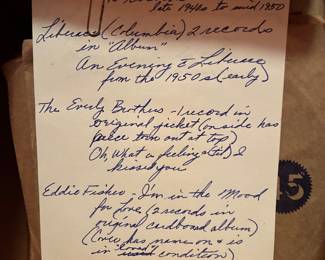 late 1940s to mid 1950
Liberace (Columbia) 2 records
in "Album"
An Evening c̄ Liberace
from the 1950s (early)
The Everly Brothers - 1 record in
original jacket (one side has
piece torn out at top)
Oh, What a feeling (til) I
kissed you
Eddie Fisher - I'm in the Mood
for Love (2 records in
original cardboard album)
(Cover has name on & is
in good used condition)
5